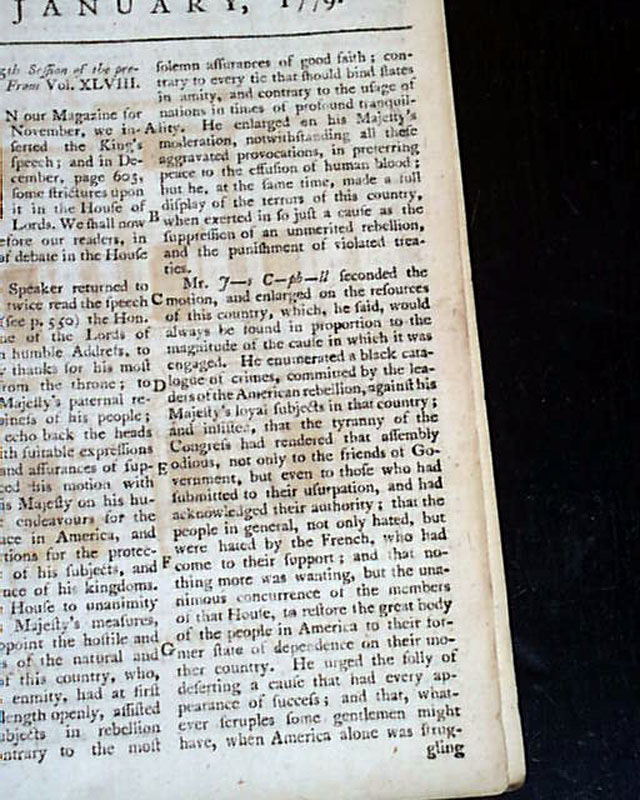 JANUARY, 1779.
gth Seſſion of the pre-
From Vol. XLVIII.
N our Magazine for
November, we in-
ſerted the King's
ſpeech; and in De-
cember, page 603,
ſome ſtrictures upon
it in the Houſe of
Lords. We ſhall now
efore our readers, in
of debate in the Houſe
Speaker returned to
twice read the ſpeech
(ſee p. 550) the Hon.
ne of the Lords of
n humble Addreſs, to
y thanks for his moſt
from the throne; to
Majeſty's paternal re-
pineſs of his people;
echo back the heads
ith ſuitable expreſſions
and aſſurances of ſup-
ced his motion with
is Majeſty on his hu-
e endeavours for the
ace in America, and
tions for the protec-
of his ſubjects, and
nce of his kingdoms.
Houſe to unanimity
Majeſty's meaſures,
ppoint the hoſtile and
s of the natural and
of this country, who,
enmity, had at firſt
length openly, aſſiſted
ubjects in rebellion
ontrary to the moſt
ſolemn aſſurances of good faith; con-
trary to every tie that ſhould bind ſtates
in amity, and contrary to the uſage of
nations in times of profound tranquil-
A lity. He enlarged on his Majeſty's
moderation, notwithſtanding all theſe
aggravated provocations, in preferring
peace to the effuſion of human blood;
but he, at the ſame time, made a full
diſplay of the terrors of this country,
B when exerted in ſo juſt a cauſe as the
ſuppreſſion of an unmerited rebellion,
and the puniſhment of violated trea-
ties.
Mr. J—s C—pb—ll ſeconded the
C motion, and enlarged on the reſources
of this country, which, he ſaid, would
always be found in proportion to the
magnitude of the cauſe in which it was
engaged. He enumerated a black cata-
D logue of crimes, committed by the lea-
ders of the American rebellion, againſt his
Majeſty's loyal ſubjects in that country;
and inſiſted, that the tyranny of the
Congreſs had rendered that aſſembly
E odious, not only to the friends of Go-
vernment, but even to thoſe who had
ſubmitted to their uſurpation, and had
acknowledged their authority; that the
people in general, not only hated, but
were hated by the French, who had
F come to their ſupport; and that no-
thing more was wanting, but the una-
nimous concurrence of the members
of that Houſe, to reſtore the great body
of the people in America to their for-
G mer ſtate of dependence on their mo-
ther country. He urged the folly of
deſerting a cauſe that had every ap-
pearance of ſucceſs; and that, what-
ever ſcruples ſome gentlemen might
have, when America alone was ſtrug-
gling